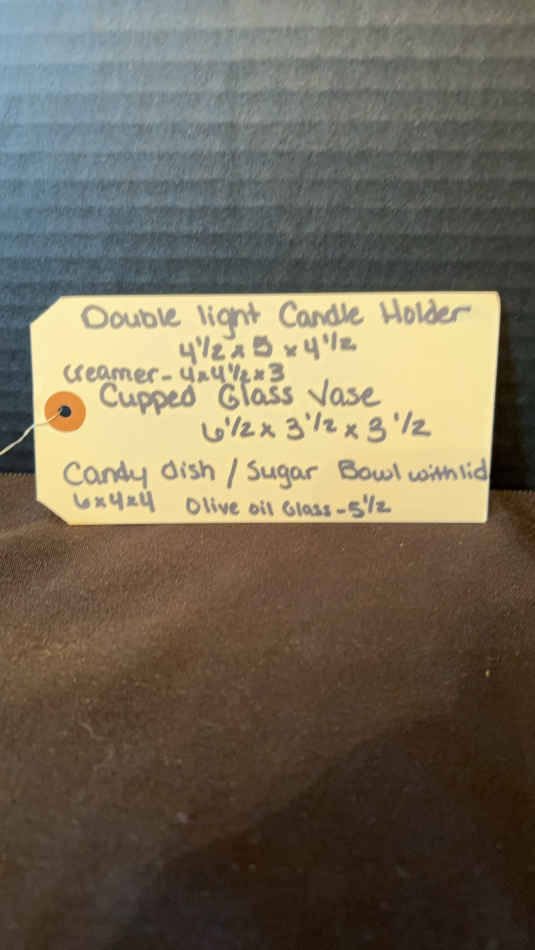 Double light Candle Holder
4 1/2 x 5 x 4 1/2
Creamer - 4x4 1/2 x 3
Cupped Glass Vase
6 1/2 x 3 1/2 x 3 1/2
Candy dish / Sugar Bowl with lid
6x4x4 Olive oil Glass - 5 1/2